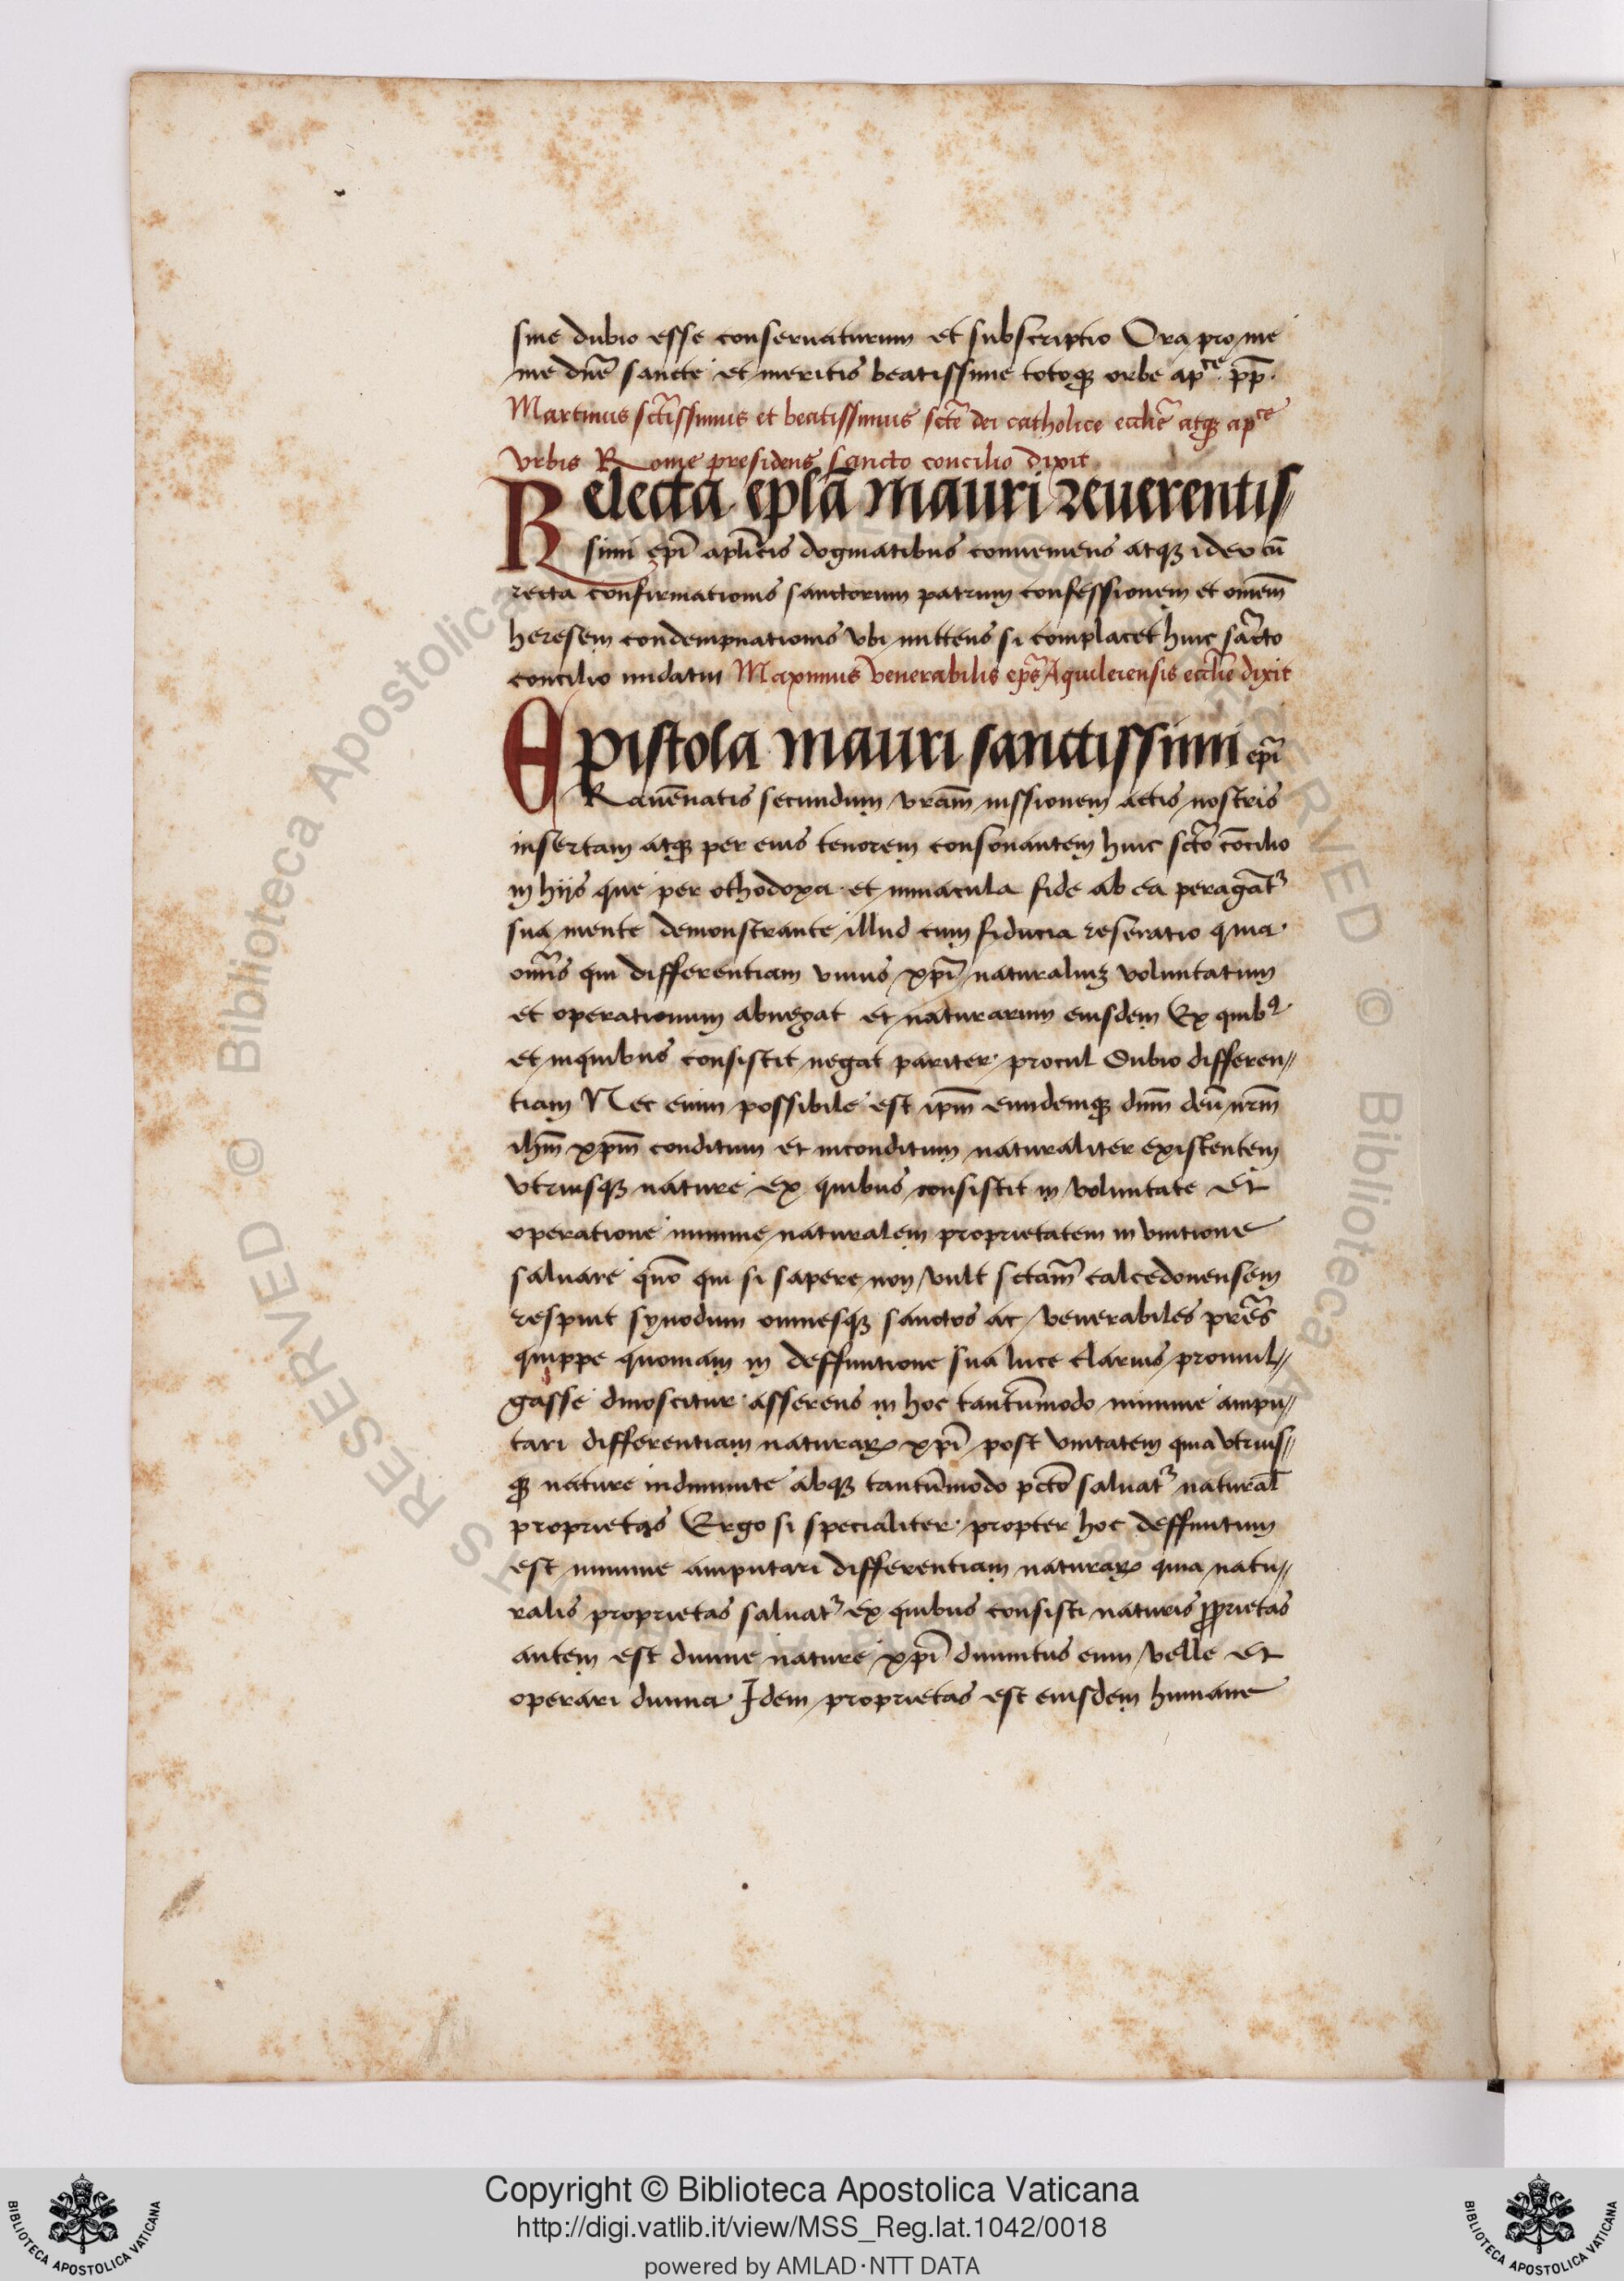 sine dubio esse conseruaturum et subscriptio Ora pro me
me dn̄e sancte et meritis beatissime totoqꝫ orbe ap^ce. pp̄.
Martinus sct̄issimus et beatissimus sct̄e dei catholice eccliē atqꝫ ap^ce
vrbis Rome presidens sancto concilio dixit
Relecta epl̄a mauri reuerentis//
simi ep̄i apl̄icis dogmatibus conueniens atqꝫ ideo cū
recta confirmationis sanctorum patrum confessionem et om̄em
heresem condempnationis vbi mittens si complacet huic sācto
concilio mdatm Maximus venerabilis ep̄s Aquileiensis eccliē dixit
Epistola mauri sanctissimi ep̄i
Rauēnatis secundum vr̄am iussionem actis nostris
insertam atqꝫ per eius tenorem consonantem huic sctō cōcilio
in hijs que per othodoxa et inmacula fide ab ea peragāt^r
sua mente demonstrante illud cum fiducia reseratio quia
om̄s qui differentiam vnius xp̄i naturaliuꝫ voluntatum
et operationum abnegat et naturarum eiusdem Ex quibꝰ
et inquibus consistit negat pariter procul dubio differen//
tiam Nec enim possibile est ip̄m eundemqꝫ dn̄m deū nr̄m
ih̄m xp̄m conditum et inconditum naturaliter existentem
vtriusqꝫ nature ex quibus consistit in voluntate et
operatione minime naturalem proprietatem in vnitione
saluare quō qui si sapere non vult sctām calcedonensem
respuit synodum omnesqꝫ sanctos ac venerabiles pr̄es
quippe quoniam in deffinitione sua luce clarius promul//
gasse dinoscitur asserens in hoc tantūmodo minime ampu//
tari differentiam naturaꝝ xp̄i post vnitatem quia vtrius//
qꝫ nature indiminute absqꝫ tantūmodo pctō saluat^r natural̄
proprietas Ergo si specialiter propter hoc deffinitum
est minime amputari differentiam naturaꝝ quia natu//
ralis proprietas saluat^r ex quibus consisti naturis ꝓprietas
autem est diuine nature xp̄i diuinitus eum velle et
operari diuina Idem proprietas est eiusdem humane
Copyright © Biblioteca Apostolica Vaticana
http://digi.vatlib.it/view/MSS_Reg.lat.1042/0018
powered by AMLAD·NTT DATA
BIBLIOTECA APOSTOLICA VATICANA
BIBLIOTECA APOSTOLICA VATICANA